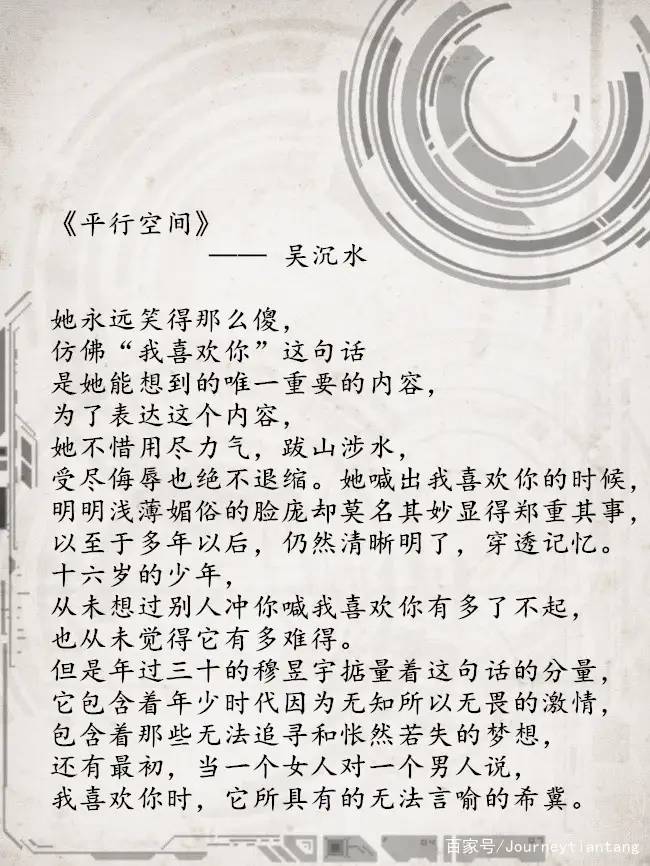 《平行空间》
—— 吴沉水
她永远笑得那么傻，
仿佛“我喜欢你”这句话
是她能想到的唯一重要的内容，
为了表达这个内容，
她不惜用尽力气，跋山涉水，
受尽侮辱也绝不退缩。她喊出我喜欢你的时候，
明明浅薄媚俗的脸庞却莫名其妙显得郑重其事，
以至于多年以后，仍然清晰明了，穿透记忆。
十六岁的少年，
从未想过别人冲你喊我喜欢你有多了不起，
也从未觉得它有多难得。
但是年过三十的穆昱宇掂量着这句话的分量，
它包含着年少时代因为无知所以无畏的激情，
包含着那些无法追寻和怅然若失的梦想，
还有最初，当一个女人对一个男人说，
我喜欢你时，它所具有的无法言喻的希冀。
百家号/Journeytiantang